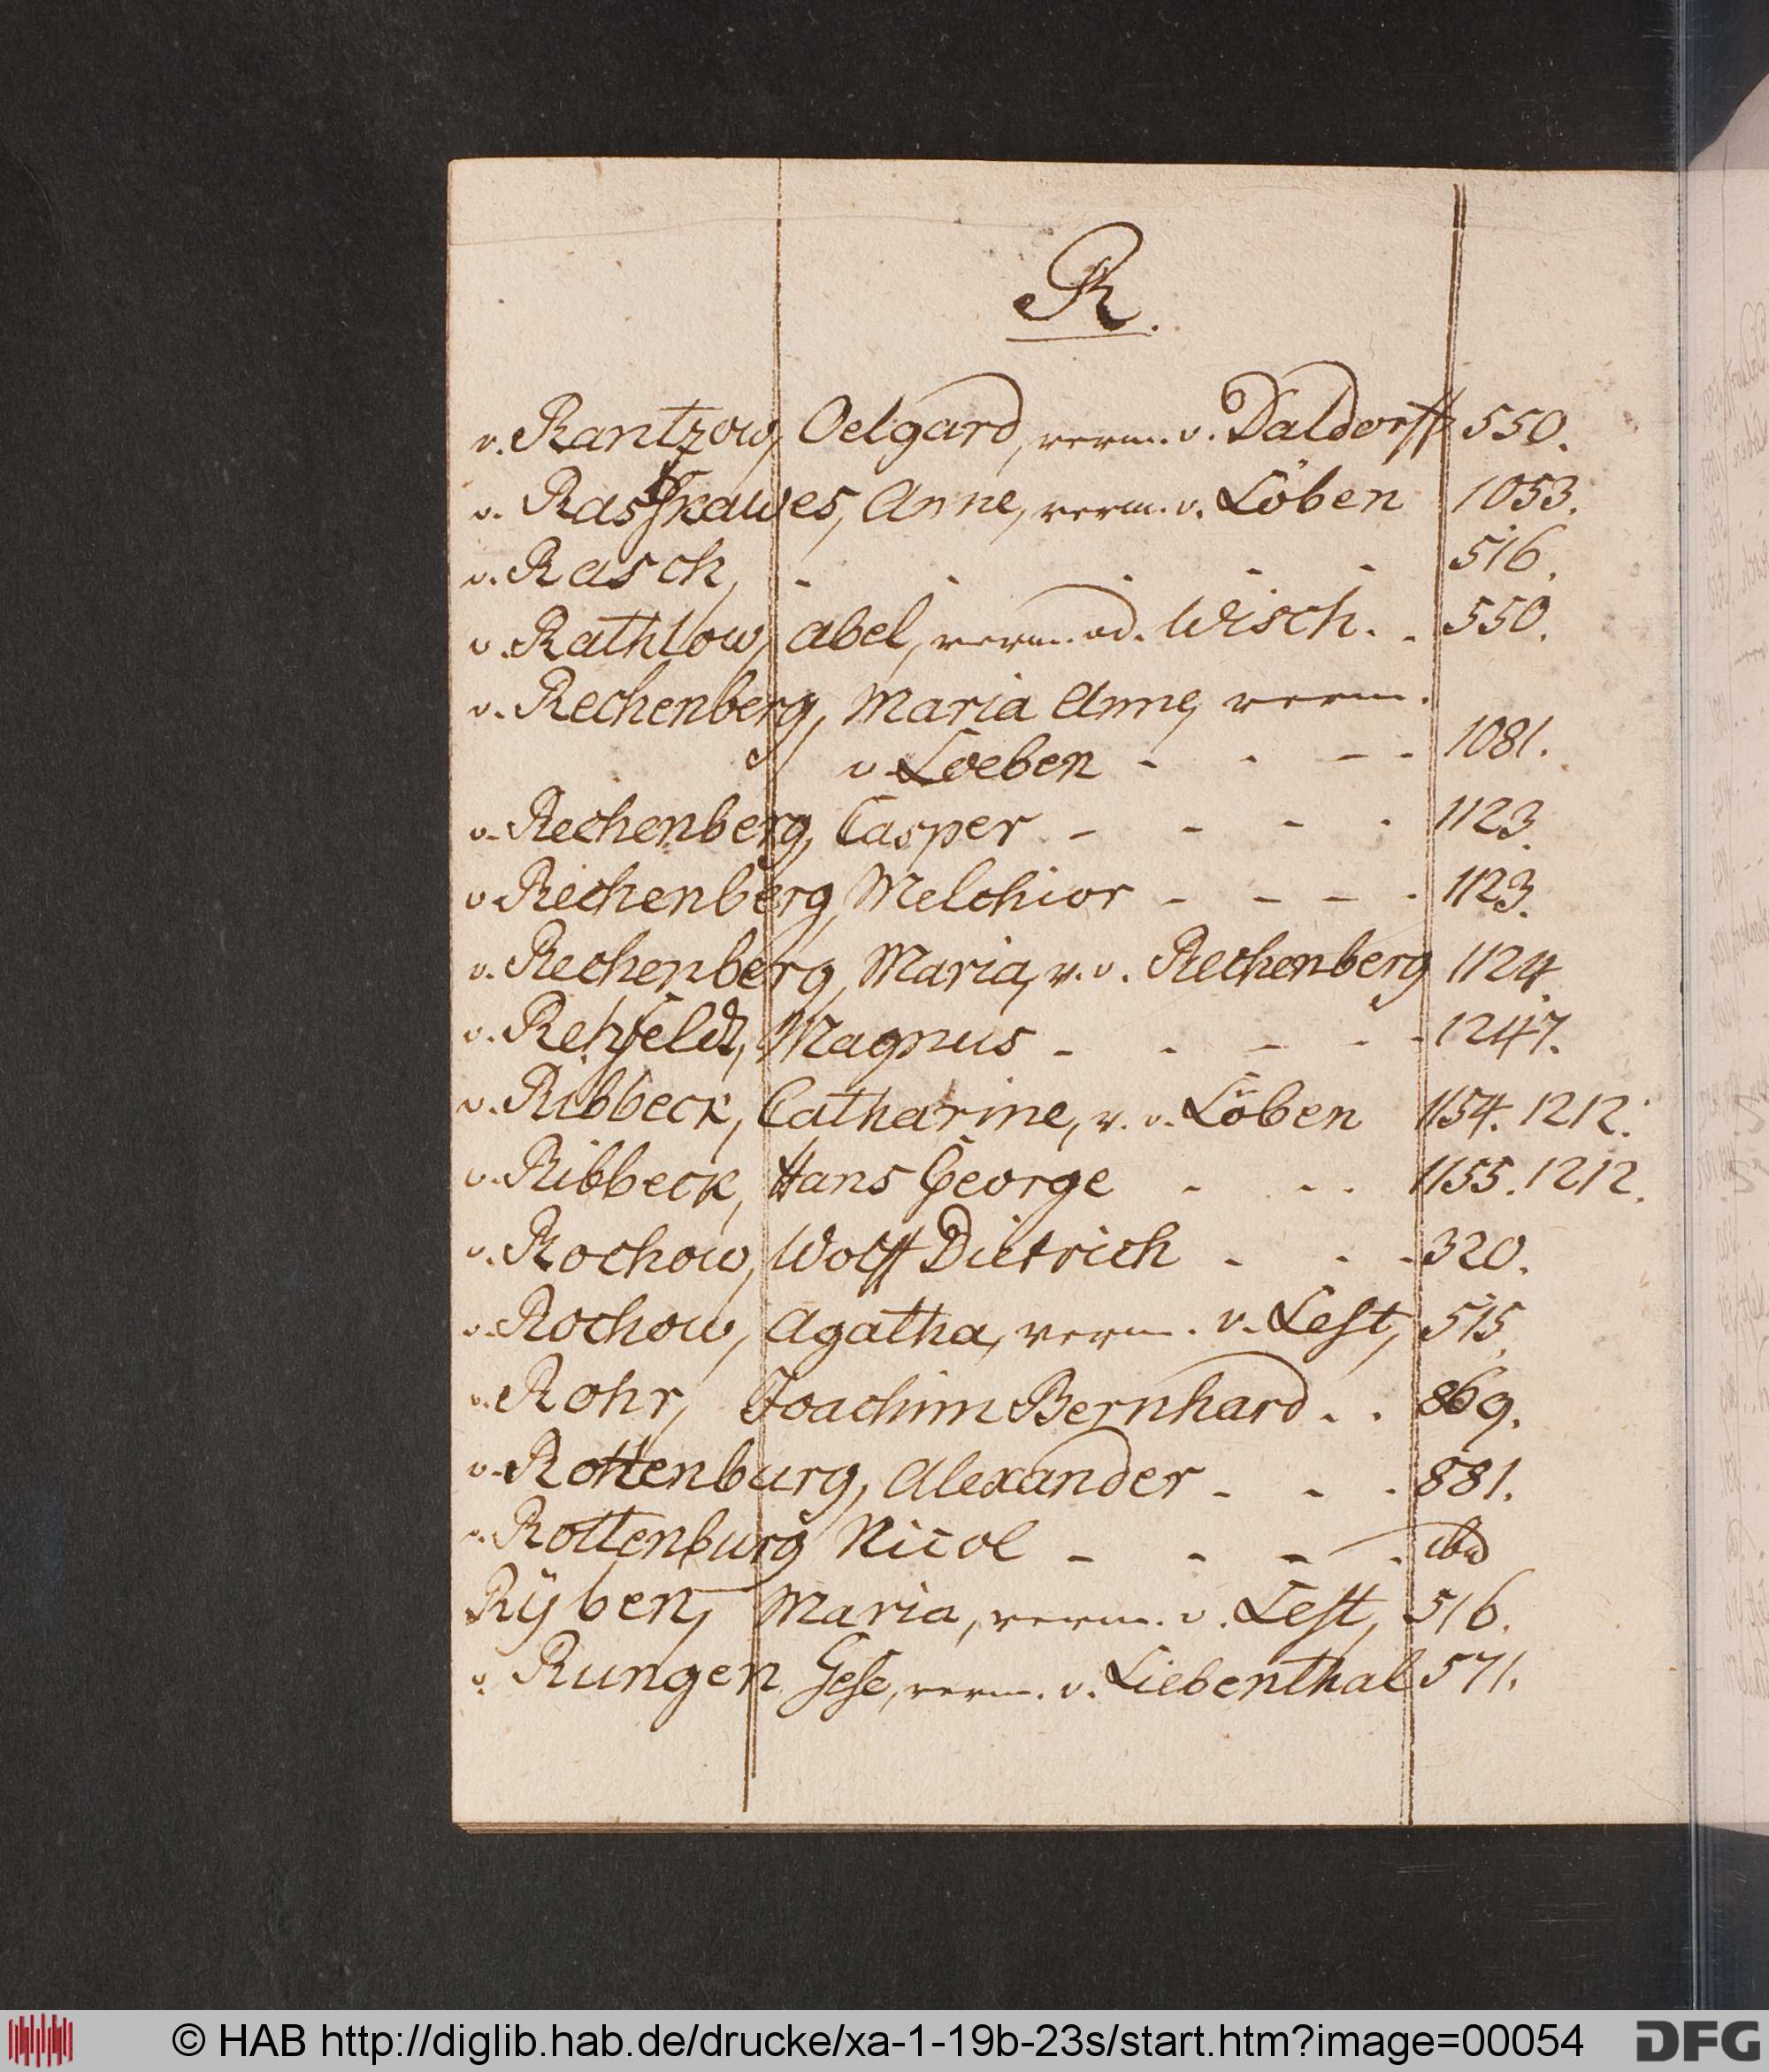 R.
v. Rantzow, Oelgard, verm. v. Daldorff 550.
v. Rasskawes, Anne, verm. v. Löben 1053.
v. Rasch, - - - - - 516.
v. Rathlow, Abel, verm. v. d. Wisch. - 550.
v. Rechenberg, Maria Anne, verm.
v. Loeben - - - - 1081.
v. Rechenberg, Casper - - - - 1123.
v. Rechenberg, Melchior - - - - 1123.
v. Rechenberg, Maria, v. v. Rechenberg 1124.
v. Rehfeldt, Magnus - - - - - 1247.
v. Ribbeck, Catharine, v. v. Löben 1154. 1212.
v. Ribbeck, Hans George - - - 1155. 1212.
v. Rochow, Wolff Dietrich - - - 320.
v. Rochow, Agatha, verm. v. Lest, 515.
v. Rohr, Joachim Bernhard - - 869.
v. Rottenburg, Alexander - - - 881.
v. Rottenburg Nicol - - - - ibid
Rÿben, Maria, verm. v. Lest, 516.
v. Rungen Gese, verm. v. Liebenthal 571.
© HAB http://diglib.hab.de/drucke/xa-1-19b-23s/start.htm?image=00054
DFG